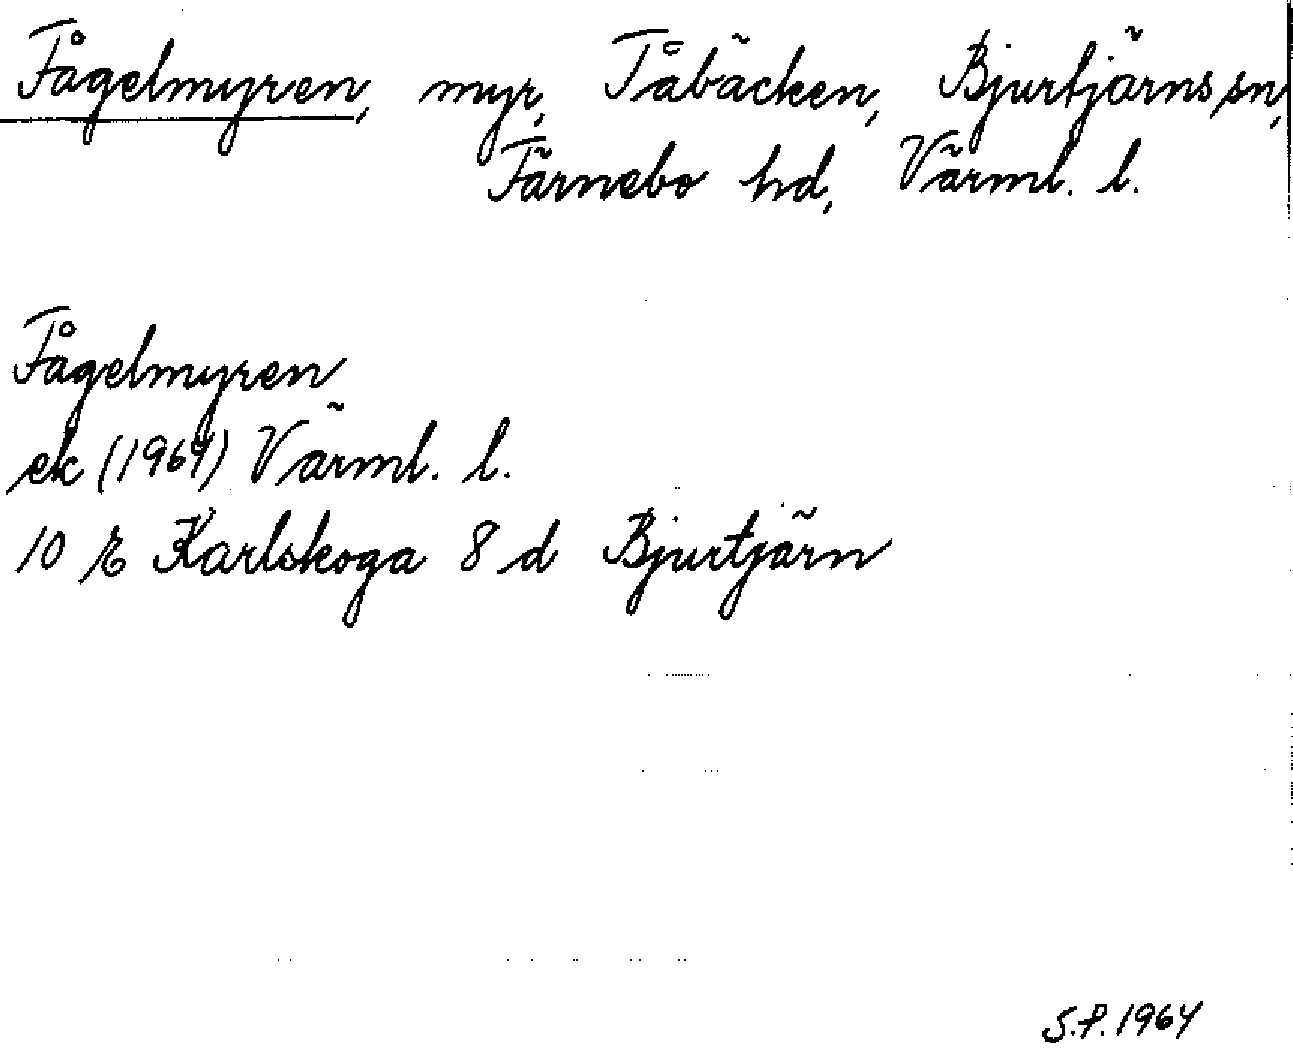 Fågelmyren, myr, Tåbäcken, Bjurtjärns sn,
Färnebo hd, Värml. l.
Fågelmyren
ek (1964) Värml. l.
10 E Karlskoga 8 d Bjurtjärn
S.P. 1964